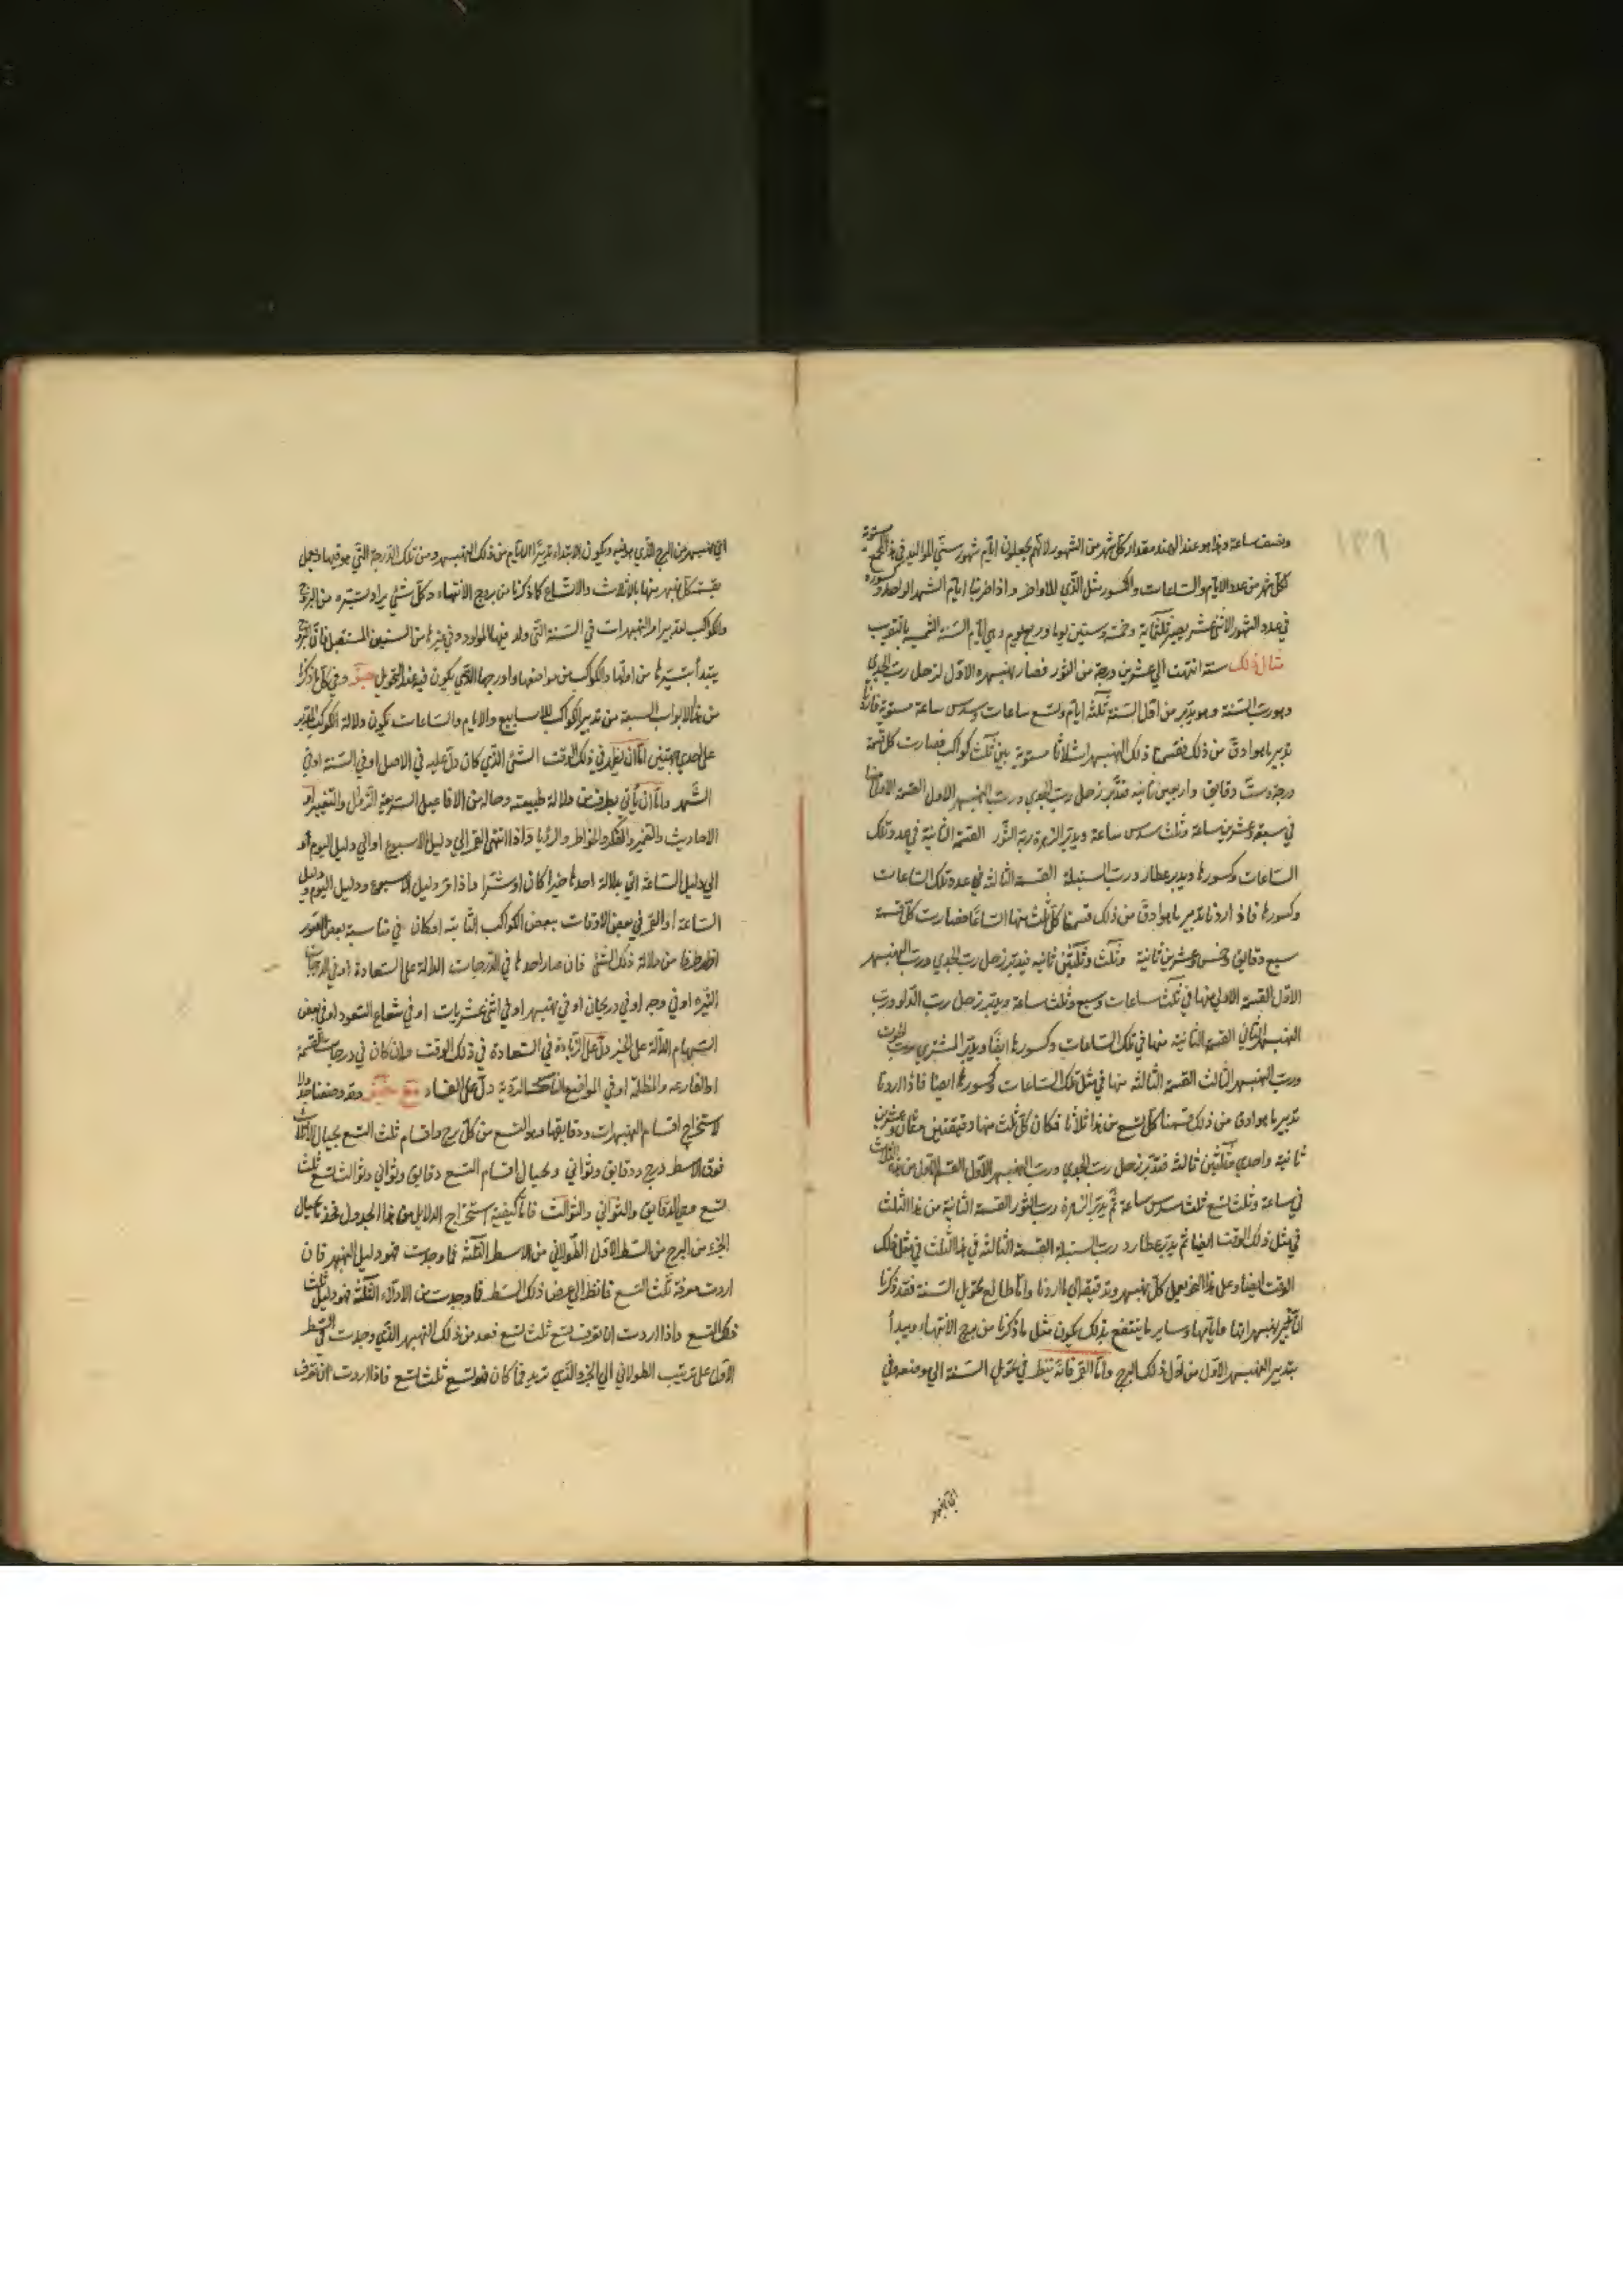 ١٣٩
ونصف ساعة وهذا هو عند الهند مقدار كل شهر من الشهور لانهم يجعلون ايام شهور سنى المواليد فى هذا مستوية
لكل شهر من عدد الايام والساعات والكسور مثل الذي للاواخر واذا ضربنا ايام الشهر الواحد وكسوره
في عدد الشهور الاثنى عشر يصير ثلثماية وخمسة وستين يوما وربع يوم وهى ايام السنة الشمسية بالتقريب
مثال ذلك سنة انتهت الي عشرين درجة من الثور فصار نهبهره الاول لزحل رب الجدي
وهو رب السنة وهو يدبر من اول السنة ثلثه ايام وتسع ساعات وسدس ساعة مستوية فاردنا
تدبير ما هو ادق من ذلك فقسمنا ذلك النهبهر اثلاثا مستوية بين ثلث كواكب فصارت كل قسمة
درجة وست دقايق واربعين ثانيه فدبر زحل رب الجدي ورب النهبهر الاول القسمة الاولى منها
في سبعة وعشرين ساعة وثلث سدس ساعة ويدبر الزهرة ربة الثور القسمة الثانية في عدد تلك
الساعات وكسورها ويدبر عطارد رب السنبلة القسمة الثالثه فى عدد تلك الساعات
وكسورها فاذا اردنا تدبير ما هو ادق من ذلك قسمنا كل ثلث منها اتساعا فصارت كل قسمة
سبع دقايق وخمس وعشرين ثانية وثلث وثلثين ثالثه فيدبر زحل رب الجدي ورب النهبهر
الاول القسمة الاولى منها في ثلث ساعات وسبع وثلث ساعة ويدبر زحل رب الدلو ورب
النهبهر الثاني القسمة الثانية منها في تلك الساعات وكسورها ايضا ويدبر المشتري رب الحوت
ورب النهبهر الثالث القسمة الثالثه منها في مثل تلك الساعات وكسورها ايضا فاذا اردنا
تدبير ما هو ادق من ذلك قسمنا كل تسع من هذا ثلاثا فكان كل ثلث منها دقيقتين وثمان وعشرين
ثانية واحدي وثلثين ثالثه فدبر زحل رب الجدي ورب النهبهر الاول القسم الاول من هذه الثلاث
في ساعة وثلث تسع ثلث سدس ساعة ثم يدبر الزهرة رب الثور القسمة الثانية من هذا الثلث
في مثل ذلك الوقت ايضا ثم يدبر عطارد رب السنبلة القسمة الثالثه في هذا الثلث في مثل ذلك
الوقت ايضا وعلى هذا النحو يعمل كل نهبهر وتدقيقه الي ما اردنا واما طالع تحويل السنة فقد ذكرنا
نهبهر ابدا وساير ما ينتفع بذلك يكون مثل ما ذكرنا من برج الانتهاء ويبدأ
بتدبير النهبهر الاول من اول ذلك البرج واما القمر فانه ينظر في تحويل السنة الي موضعه وفي
اي نهبهر من البرج الذي هو فيه ويكون الابتداء بتدبير الايام من ذلك النهبهر ومن تلك الدرجة التي هو فيها ويعمل
بقسمة كل نهبهر منها بالاثلاث والاتساع كما ذكرنا من بروج الانتهاء وكل شئ يراد تسييره من البروج
والكواكب لتدبير او النهبهرات في السنة التي ولد فيها المولود وفي غيرها من السنين المستقبل فان البروج
يبتدأ بتسييرها من اولها والكواكب من مواضعها او درجها الذي يكون فيه عند التحويل وفي كل ما ذكرنا
من هذه الابواب السبعة من تدبير الكواكب للاسابيع والايام والساعات يكون دلالة الكوكب المدبر
على احدي جهتين اما ان يظهر في ذلك الوقت الشئ الذي كان دل عليه في الاصل او في السنة او في
الشهر واما ان يأتي بطرف من دلالة طبيعته وحاله من الافاعيل السريعة الزوال والتغيير او
الاحاديث والضمير والفكر والخواطر والرؤيا واذا انتهى القمر الي دليل الاسبوع او الي دليل اليوم او
الي دليل الساعة اتي بدلالة احدها خيرا كان او شرا واذا مر دليل الاسبوع ودليل اليوم ودليل
الساعة او القمر في بعض الاوقات ببعض الكواكب الثابتة او كان في مناسبة بعض الصور
اظهر طرفا من دلالة ذلك الشئ فان صار احدها في الدرجات الدالة على السعادة او في الدرجات
النيرة او في وجه او في دريجان او في نهبهر او في اثنى عشريات او في شعاع السعود او في بعض
السهام الدالة على الخير دل على الزيادة في السعادة في ذلك الوقت وان كان في درجات القتمة
او الفارغه والمظلمة او في المواضع الردية دل على الفساد وقد وضعنا جدولا
لاستخراج اقسام النهبهرات ودقايقها وهو التسع من كل برج واقسام ثلث التسع بحيال الثلاث
فوق الاسطر درج ودقايق وثواني وبحيال اقسام التسع دقايق وثواني وثوالث تسع ثلث
تسع وهي الدقايق والثواني والثوالث فاما كيفية استخراج الدلايل من هذا الجدول فخذ بحيال
الجزء من البرج من السطر الاول الطولاني من الاسطر الثلثة فما وجدت فهو دليل النهبهر فان
اردت معرفة ثلث التسع فانظر الي عرض ذلك السطر فما وجدت من الادلاء الثلثة فهو دليل ثلث
ذلك التسع واذا اردت ان تعرف تسع ثلث تسع فعد من ذلك النهبهر الذي وجدت في السطر
الاول على ترتيب الطولاني الي الجزء الذي تريد فما كان فهو تسع ثلث تسع فاذا اردت ان تعرف